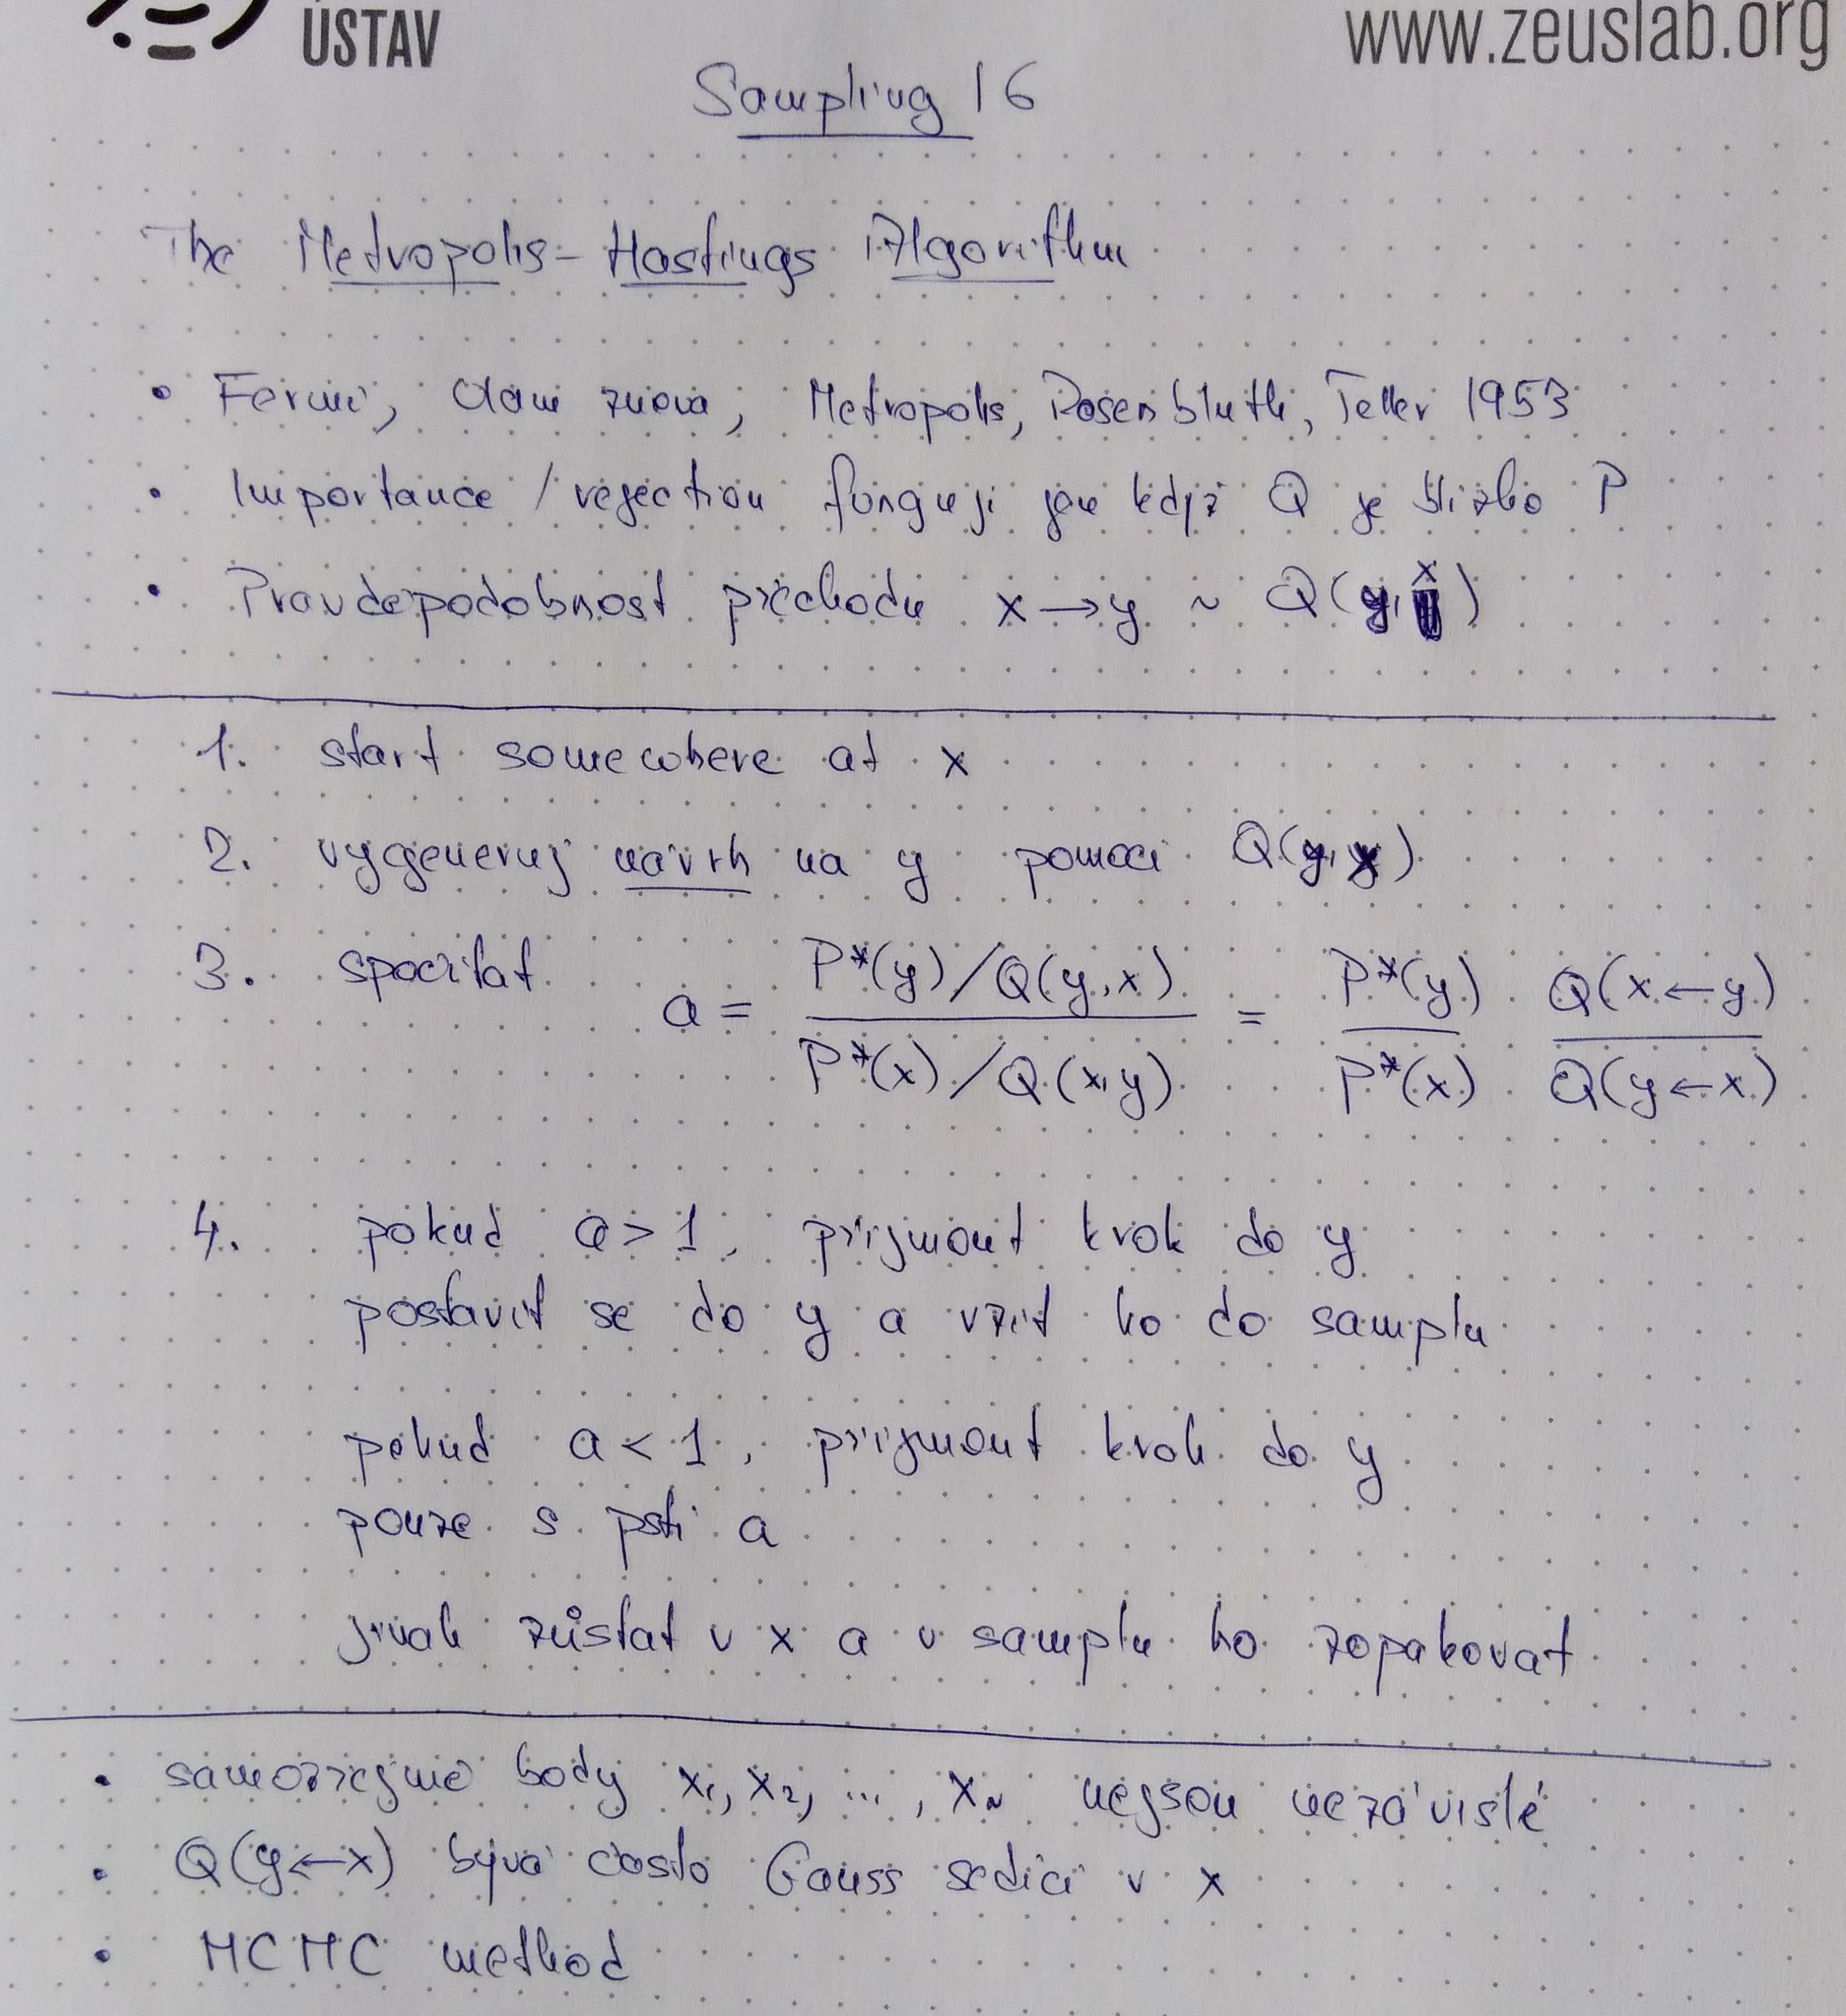 ÚSTAV
www.zeuslab.org
Sampling 16
The Metropolis-Hastings Algorithm
• Fermi, Ulam znova, Metropolis, Rosenbluth, Teller 1953
• Importance / rejection fungují jen když Q je blízko P
• Pravděpodobnost přechodu x → y ~ Q(y, x)
1. start somewhere at x
2. vygeneruj návrh na y pomocí Q(y, x)
3. spočítat a = P*(y)/Q(y,x) / P*(x)/Q(x,y) = P*(y) / P*(x) Q(x←y) / Q(y←x)
4. pokud a > 1, přijmout krok do y
postavit se do y a vzít ho do samplu
pokud a < 1, přijmout krok do y
pouze s psti a
jinak zůstat v x a v samplu ho zopakovat
• samozřejmě body x₁, x₂, ..., xₙ nejsou nezávislé
• Q(y←x) bývá často Gauss sedící v x
• MCMC method